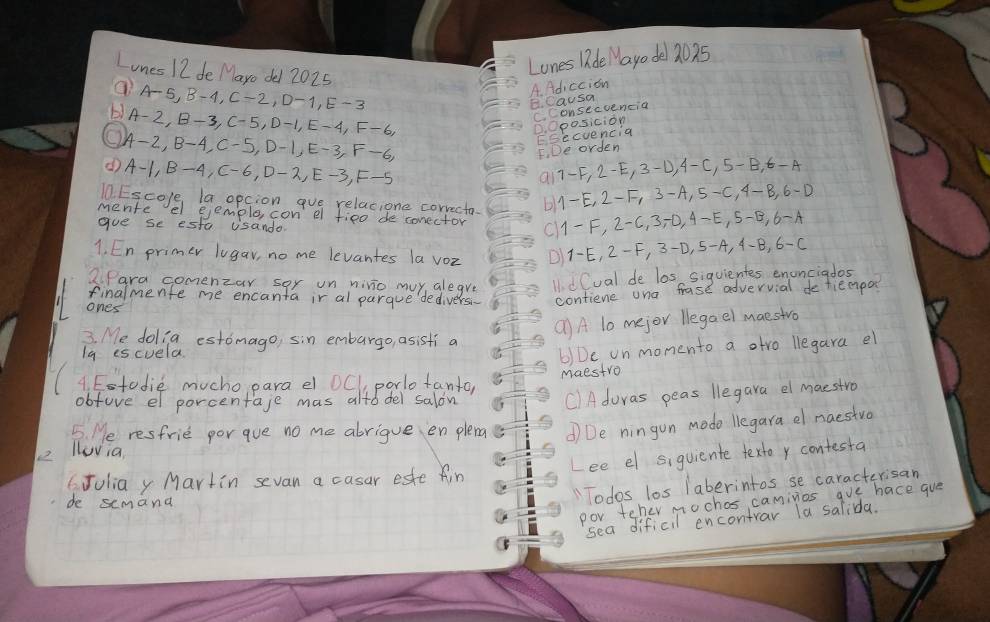 Lunes 12 de Mayo del 2025
a) A-5, B-4, C-2, D-1, E-3
b) A-2, B-3, C-5, D-1, E-4, F-6,
c) A-2, B-4, C-5, D-1, E-3, F-6,
d) A-1, B-4, C-6, D-2, E-3, F-5
10. Escoje la opcion que relacione correcta-
mente el ejemplo, con el tipo de conector
que se esta usando.
1. En primer lugar, no me levantes la voz
2. Para comenzar soy un niño muy alegre
finalmente me encanta ir al parque de diversi-
ones
3. Me dolía estómago, sin embargo, asistí a
la escuela.
4. Estudié mucho para el OCI, por lo tanto,
obtuve el porcentaje mas alto del salón
5. Me resfrié por que no me abrigue en plena
lluvia,
6. Julia y Martín se van a casar este fin
de semana
Lunes 12 de Mayo del 2025
A. Adiccion
B. Causa
C. Consecuencia
D. Oposición
E Secuencia
F. De orden
a) 1-F, 2-E, 3-D, 4-C, 5-B, 6-A
b) 1-E, 2-F, 3-A, 5-C, 4-B, 6-D
c) 1-F, 2-C, 3-D, 4-E, 5-B, 6-A
D) 1-E, 2-F, 3-D, 5-A, 4-B, 6-C
11. ¿Cual de los siguientes enunciados
contiene una frase advervial de tiempo?
a) A lo mejor llega el Maestro
b) De un momento a otro llegara el
Maestro
C) A duras peas llegara el maestro
d) De ningun modo llegara el maestro
Lee el siguiente texto y contesta
Todos los laberintos se caracterisan
por tener muchos caminos que hace que
sea dificil encontrar la salida.